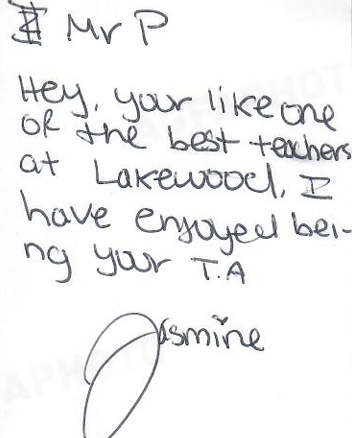 Mr P
Hey, your like one
of the best teachers
at Lakewood. I
have enjoyed bei-
ng your T.A
Jasmine